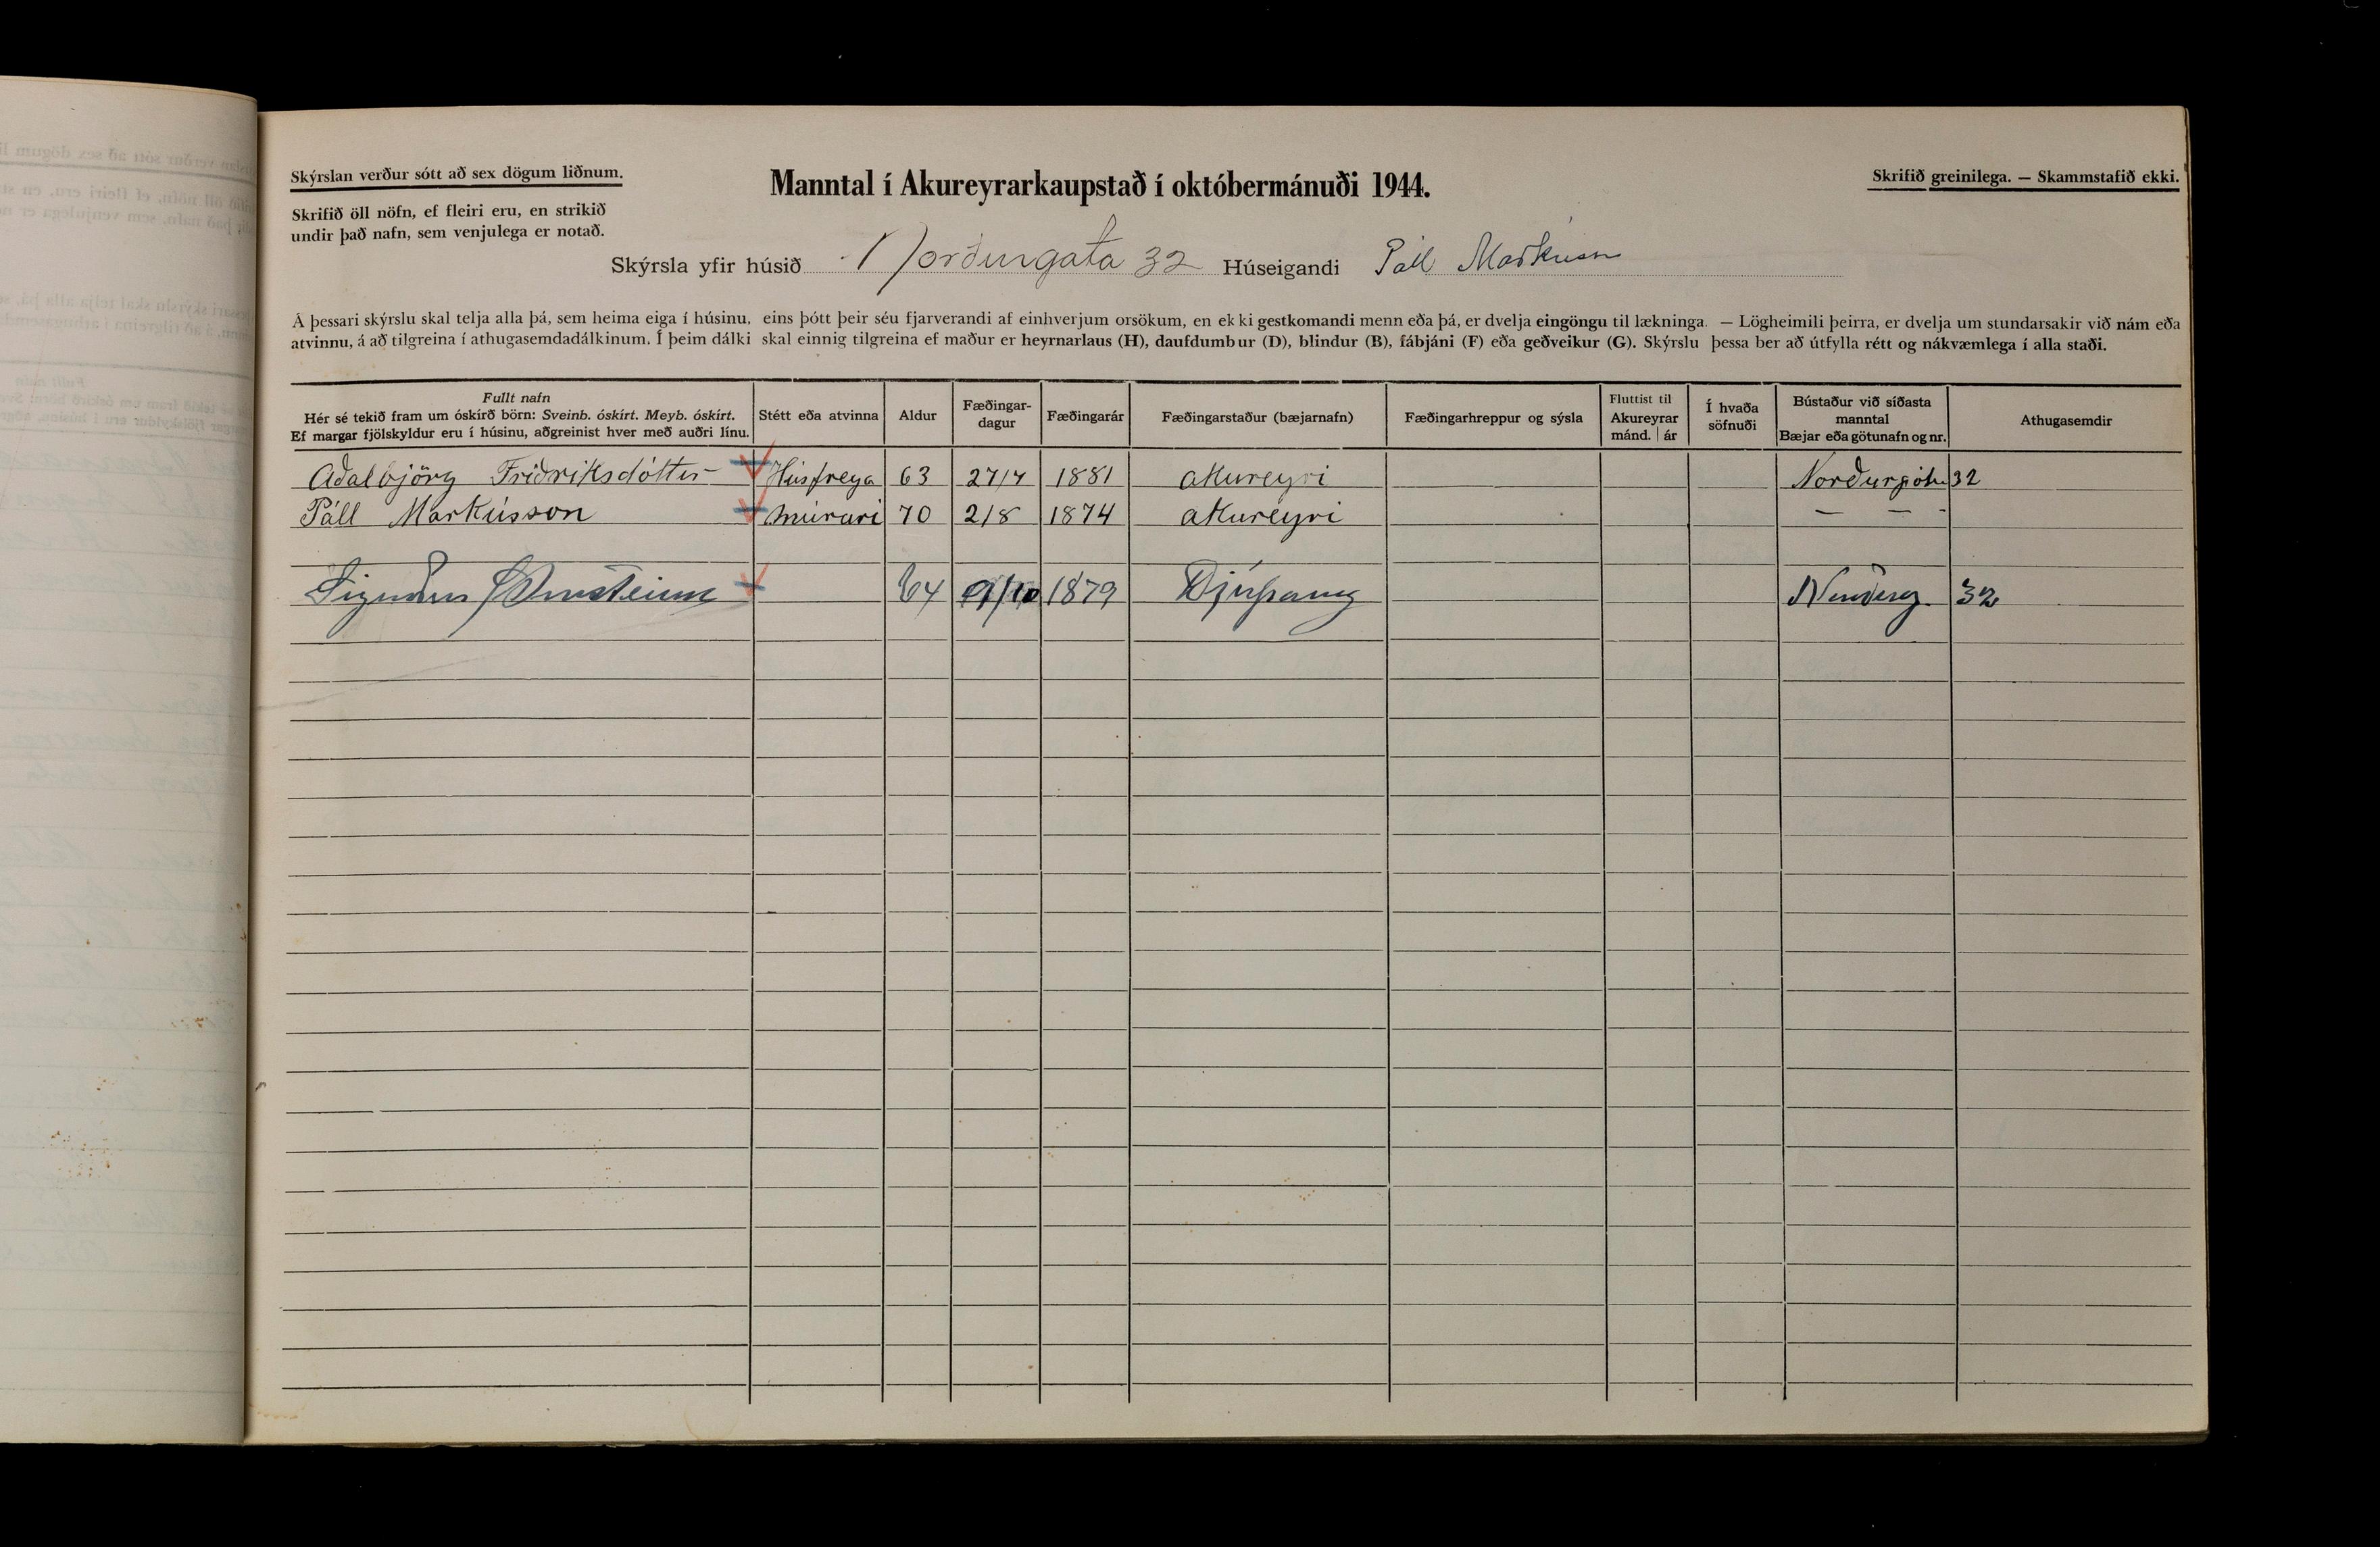 Skýrslan verður sótt að sex dögum liðnum.
Manntal í Akureyrarkaupstað í októbermánuði 1944.
Skrifið greinilega. — Skammstafið ekki.
Skrifið öll nöfn, ef fleiri eru, en strikið
undir það nafn, sem venjulega er notað.
Skýrsla yfir húsið Norðurgata 32 Húseigandi Páll Markússon
Á þessari skýrslu skal telja alla þá, sem heima eiga í húsinu, eins þótt þeir séu fjarverandi af einhverjum orsökum, en ekki gestkomandi menn eða þá, er dvelja eingöngu til lækninga. — Lögheimili þeirra, er dvelja um stundarsakir við nám eða
atvinnu, á að tilgreina í athugasemdadálkinum. Í þeim dálki skal einnig tilgreina ef maður er heyrnarlaus (H), daufdumbur (D), blindur (B), fábjáni (F) eða geðveikur (G). Skýrslu þessa ber að útfylla rétt og nákvæmlega í alla staði.
Fullt nafn
Hér sé tekið fram um óskírð börn: Sveinb. óskírt. Meyb. óskírt.
Ef margar fjölskyldur eru í húsinu, aðgreinist hver með auðri línu.
Stétt eða atvinna
Aldur
Fæðingar-
dagur
Fæðingarár
Fæðingarstaður (bæjarnafn)
Fæðingarhreppur og sýsla
Fluttist til
Akureyrar
mánd. | ár
Í hvaða
söfnuði
Bústaður við síðasta
manntal
Bæjar eða götunafn og nr.
Athugasemdir
Aðalbjörg Friðriksdóttir Húsfreya 63 27/7 1881 Akureyri Norðurgötu 32
Páll Markússon múrari 70 2/8 1874 Akureyri — — -
64 9/10 1879 32